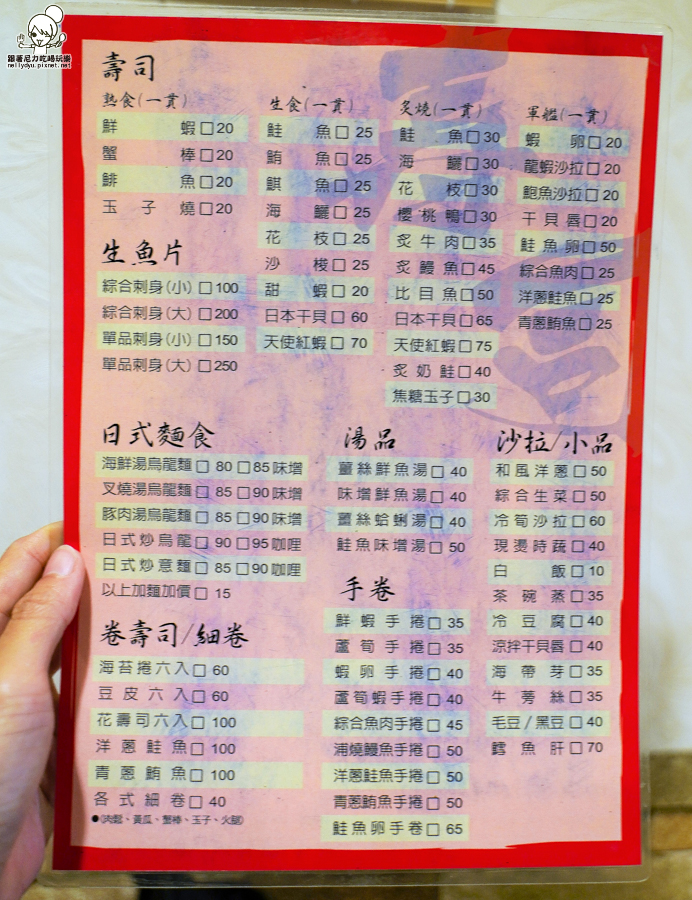 跟著尼力吃喝玩樂
nellydyu.pixnet.net
壽司
熟食(一貫)
鮮蝦□20
蟹棒□20
鯡魚□20
玉子燒□20
生食(一貫)
鮭魚□25
鮪魚□25
鯕魚□25
海鱺□25
花枝□25
沙梭□25
甜蝦□20
日本干貝□60
天使紅蝦□70
炙燒(一貫)
鮭魚□30
海鱺□30
花枝□30
櫻桃鴨□30
炙牛肉□35
炙鰻魚□45
比目魚□50
日本干貝□65
天使紅蝦□75
炙奶鮭□40
焦糖玉子□30
軍艦(一貫)
蝦卵□20
龍蝦沙拉□20
鮑魚沙拉□20
干貝唇□20
鮭魚卵□50
綜合魚肉□25
洋蔥鮭魚□25
青蔥鮪魚□25
生魚片
綜合刺身(小)□100
綜合刺身(大)□200
單品刺身(小)□150
單品刺身(大)□250
日式麵食
海鮮湯烏龍麵□80□85味增
叉燒湯烏龍麵□85□90味增
豚肉湯烏龍麵□85□90味增
日式炒烏龍□90□95咖哩
日式炒意麵□85□90咖哩
以上加麵加價□15
卷壽司/細卷
海苔捲六入□60
豆皮六入□60
花壽司六入□100
洋蔥鮭魚□100
青蔥鮪魚□100
各式細卷□40
●(肉鬆、黃瓜、蟹棒、玉子、火腿)
湯品
薑絲鮮魚湯□40
味增鮮魚湯□40
薑絲蛤蜊湯□40
鮭魚味增湯□50
手卷
鮮蝦手捲□35
蘆筍手捲□35
蝦卵手捲□40
蘆筍蝦手捲□40
綜合魚肉手捲□45
浦燒鰻魚手捲□50
洋蔥鮭魚手捲□50
青蔥鮪魚手捲□50
鮭魚卵手卷□65
沙拉/小品
和風洋蔥□50
綜合生菜□50
冷筍沙拉□60
現燙時蔬□40
白飯□10
茶碗蒸□35
冷豆腐□40
涼拌干貝唇□40
海帶芽□35
牛蒡絲□35
毛豆/黑豆□40
鱈魚肝□70